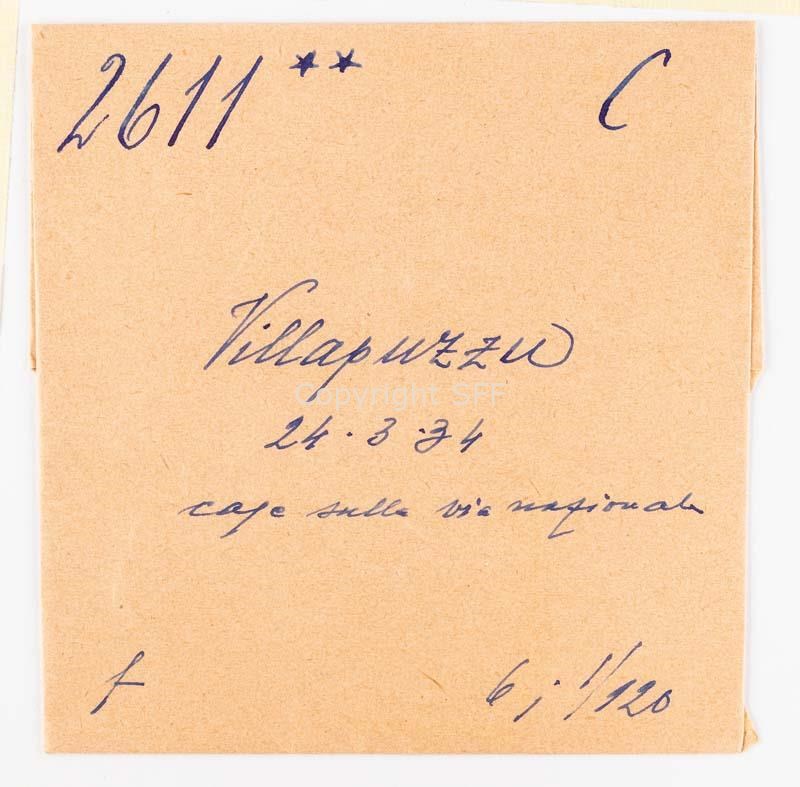 2611 ** C
Villapuzzu
Copyright SFF
24.3.34
case sulla via nazionale
f
6; 1/120